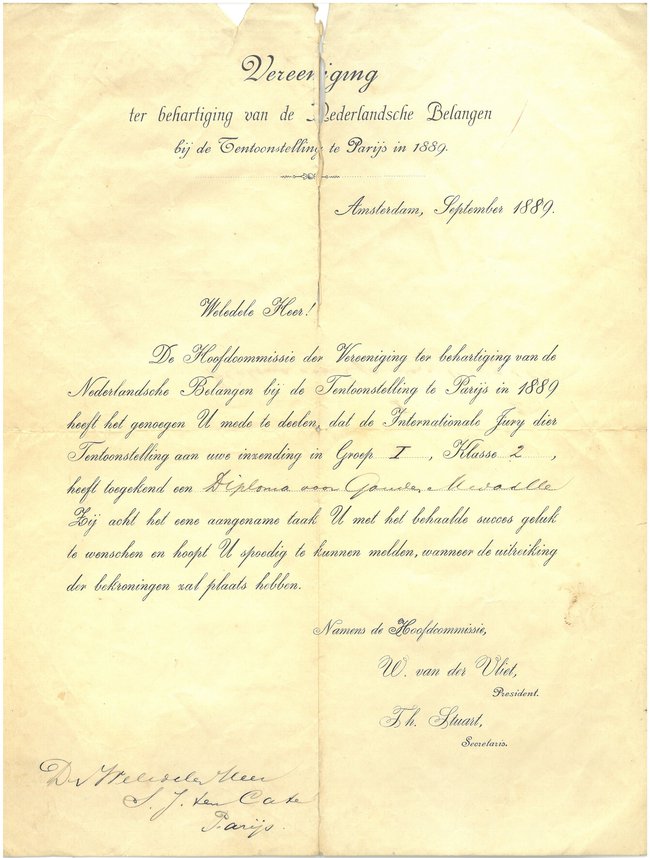 Vereeniging
ter behartiging van de Nederlandsche Belangen
bij de Tentoonstelling te Parijs in 1889.
Amsterdam, September 1889.
Weledele Heer!
De Hoofdcommissie der Vereeniging ter behartiging van de
Nederlandsche Belangen bij de Tentoonstelling te Parijs in 1889
heeft het genoegen U mede te deelen, dat de Internationale Jury dier
Tentoonstelling aan uwe inzending in Groep I, Klasse 2,
heeft toegekend een Diploma voor Gouden Medaille
Zij acht het eene aangename taak U met het behaalde succes geluk
te wenschen en hoopt U spoedig te kunnen melden, wanneer de uitreiking
der bekroningen zal plaats hebben.
Namens de Hoofdcommissie,
W. van der Vliet,
President.
Th. Stuart,
Secretaris.
Weledelen Heer
S. J. ten Cate
Parijs.